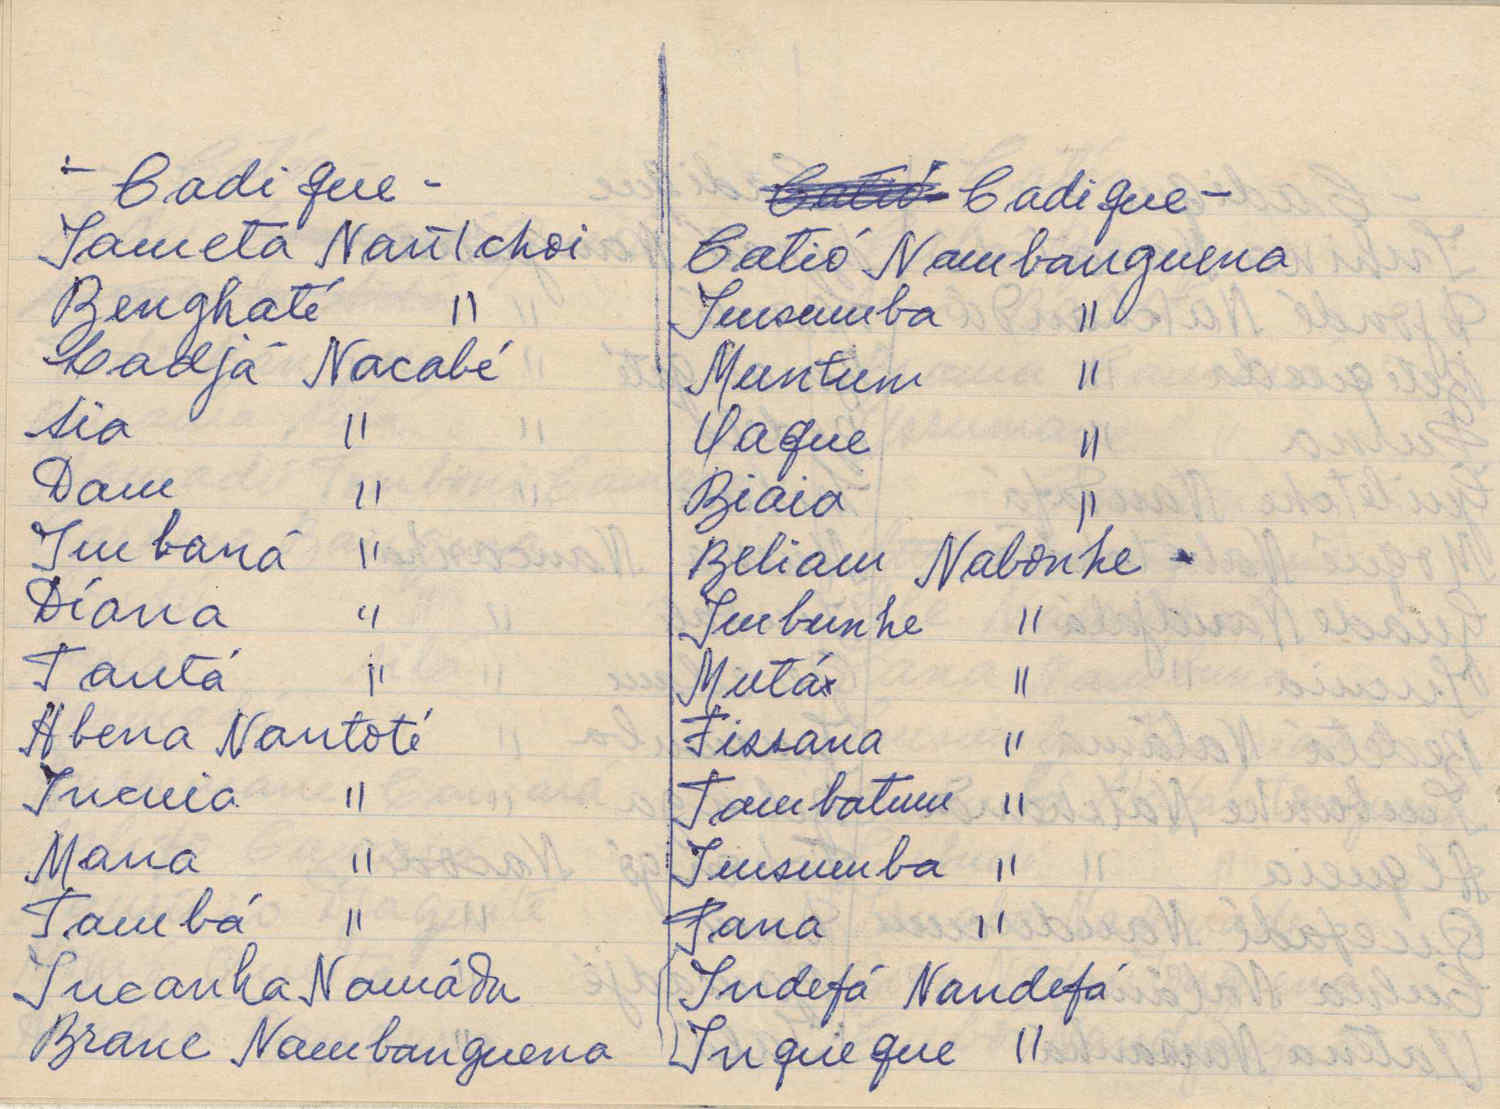 - Cadique -
Sameta Nantchoi
Benghaté "
Cadjá Nacabé
Sia "
Dam "
Imbaná "
Diana "
Tantá "
Abena Nantoté
Incuia "
Mana "
Tambá "
Incanha Namádu
Brane Nambanguena
Cadique -
Catió Nambanguena
Insumba "
Muntum "
Yaque "
Biaia "
Beliam Nabonhe -
Imbunhe "
Mutá "
Fissana "
Tambatum "
Insumba "
Fana "
Indefá Nandefá
Inquieque "